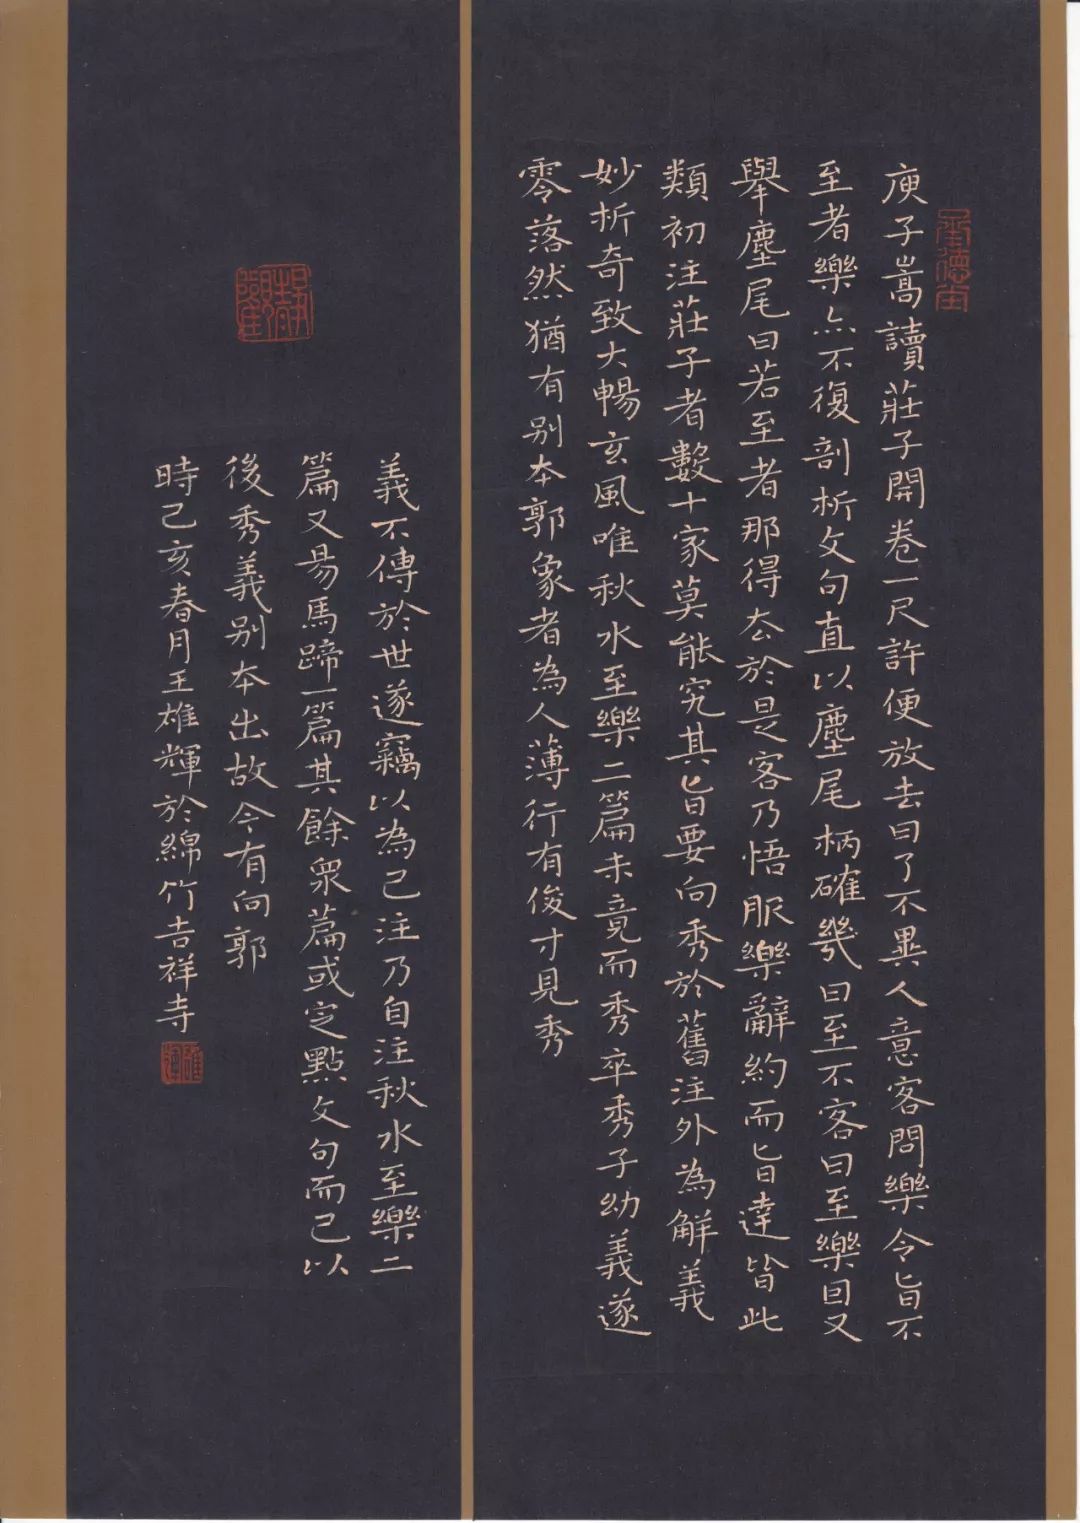 庾子嵩讀莊子開卷一尺許便放去曰了不異人意客問樂令旨不
至者樂亦不復剖析文句直以塵尾柄確幾曰至不客曰至樂因又
舉塵尾曰若至者那得去於是客乃悟服樂辭約而旨達皆此
類初注莊子者數十家莫能究其旨要向秀於舊注外為解義
妙析奇致大暢玄風唯秋水至樂二篇未竟而秀卒秀子幼義遂
零落然猶有别本郭象者為人薄行有俊才見秀
義不傳於世遂竊以為己注乃自注秋水至樂二
篇又易馬蹄一篇其餘眾篇或定點文句而已以
後秀義别本出故今有向郭
時己亥春月王雄輝於綿竹吉祥寺
靜觀
雄輝